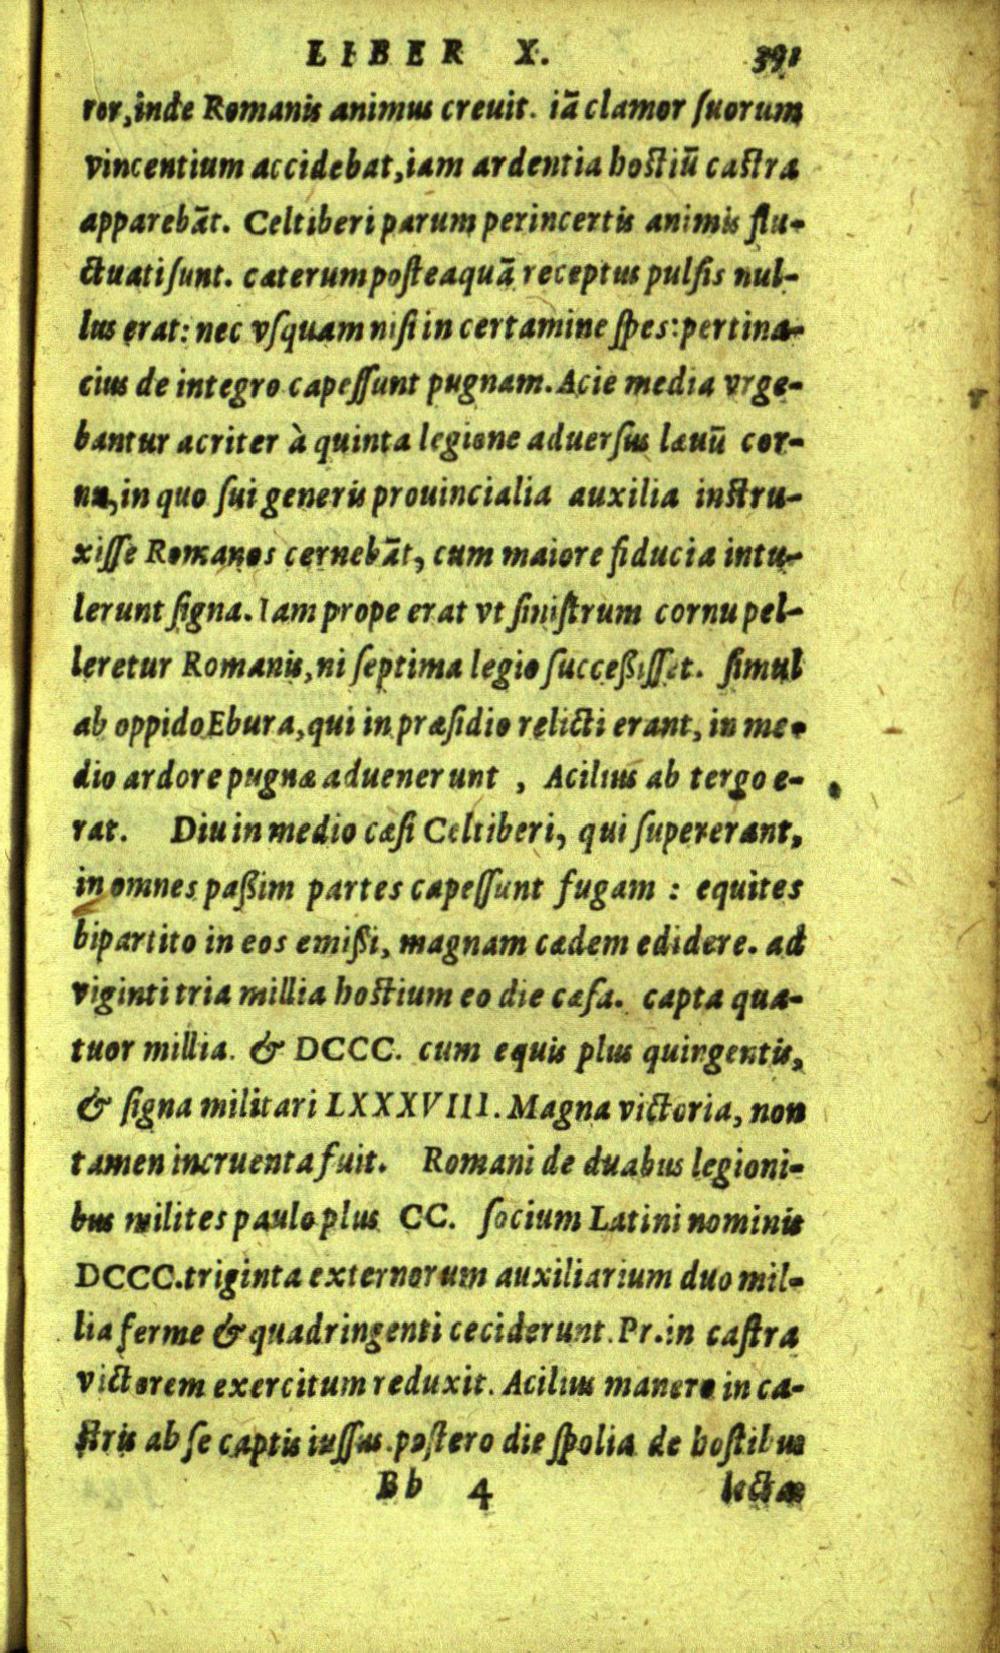 LIBER X. 391
ror, inde Romanis animus creuit. iā clamor ſuorum
vincentium accidebat, iam ardentia hoſtiū caſtra
apparebāt. Celtiberi parumper incertis animis flu-
ctuati ſunt. cæterum poſteaquā receptus pulſis nul-
lus erat: nec vſquam niſi in certamine ſpes: pertina-
cius de integro capeſſunt pugnam. Acie media vrge-
bantur acriter à quinta legione aduerſus læuū cor-
nu, in quo ſui generis prouincialia auxilia inſtru-
xiſſe Romanos cernebāt, cum maiore fiducia intu-
lerunt ſigna. Iam prope erat vt ſiniſtrum cornu pel-
leretur Romanis, ni ſeptima legio ſucceßiſſet. ſimul
ab oppido Ebura, qui in præſidio relicti erant, in me-
dio ardore pugnæ aduenerunt , Acilius ab tergo e-
rat. Diu in medio cæſi Celtiberi, qui ſupererant,
in omnes paßim partes capeſſunt fugam : equites
bipartito in eos emißi, magnam cædem edidere. ad
viginti tria millia hoſtium eo die cæſa. capta qua-
tuor millia. & DCCC. cum equis plus quingentis,
& ſigna militari LXXXVIII. Magna victoria, non
tamen incruenta fuit. Romani de duabus legioni-
bus milites paulo plus CC. ſocium Latini nominis
DCCC. triginta externorum auxiliarium duo mil-
lia ferme & quadringenti ceciderunt. Pr. in caſtra
victorem exercitum reduxit. Acilius manere in ca-
ſtris ab ſe captis iuſſus. poſtero die ſpolia de hoſtibus
Bb 4 lectæ